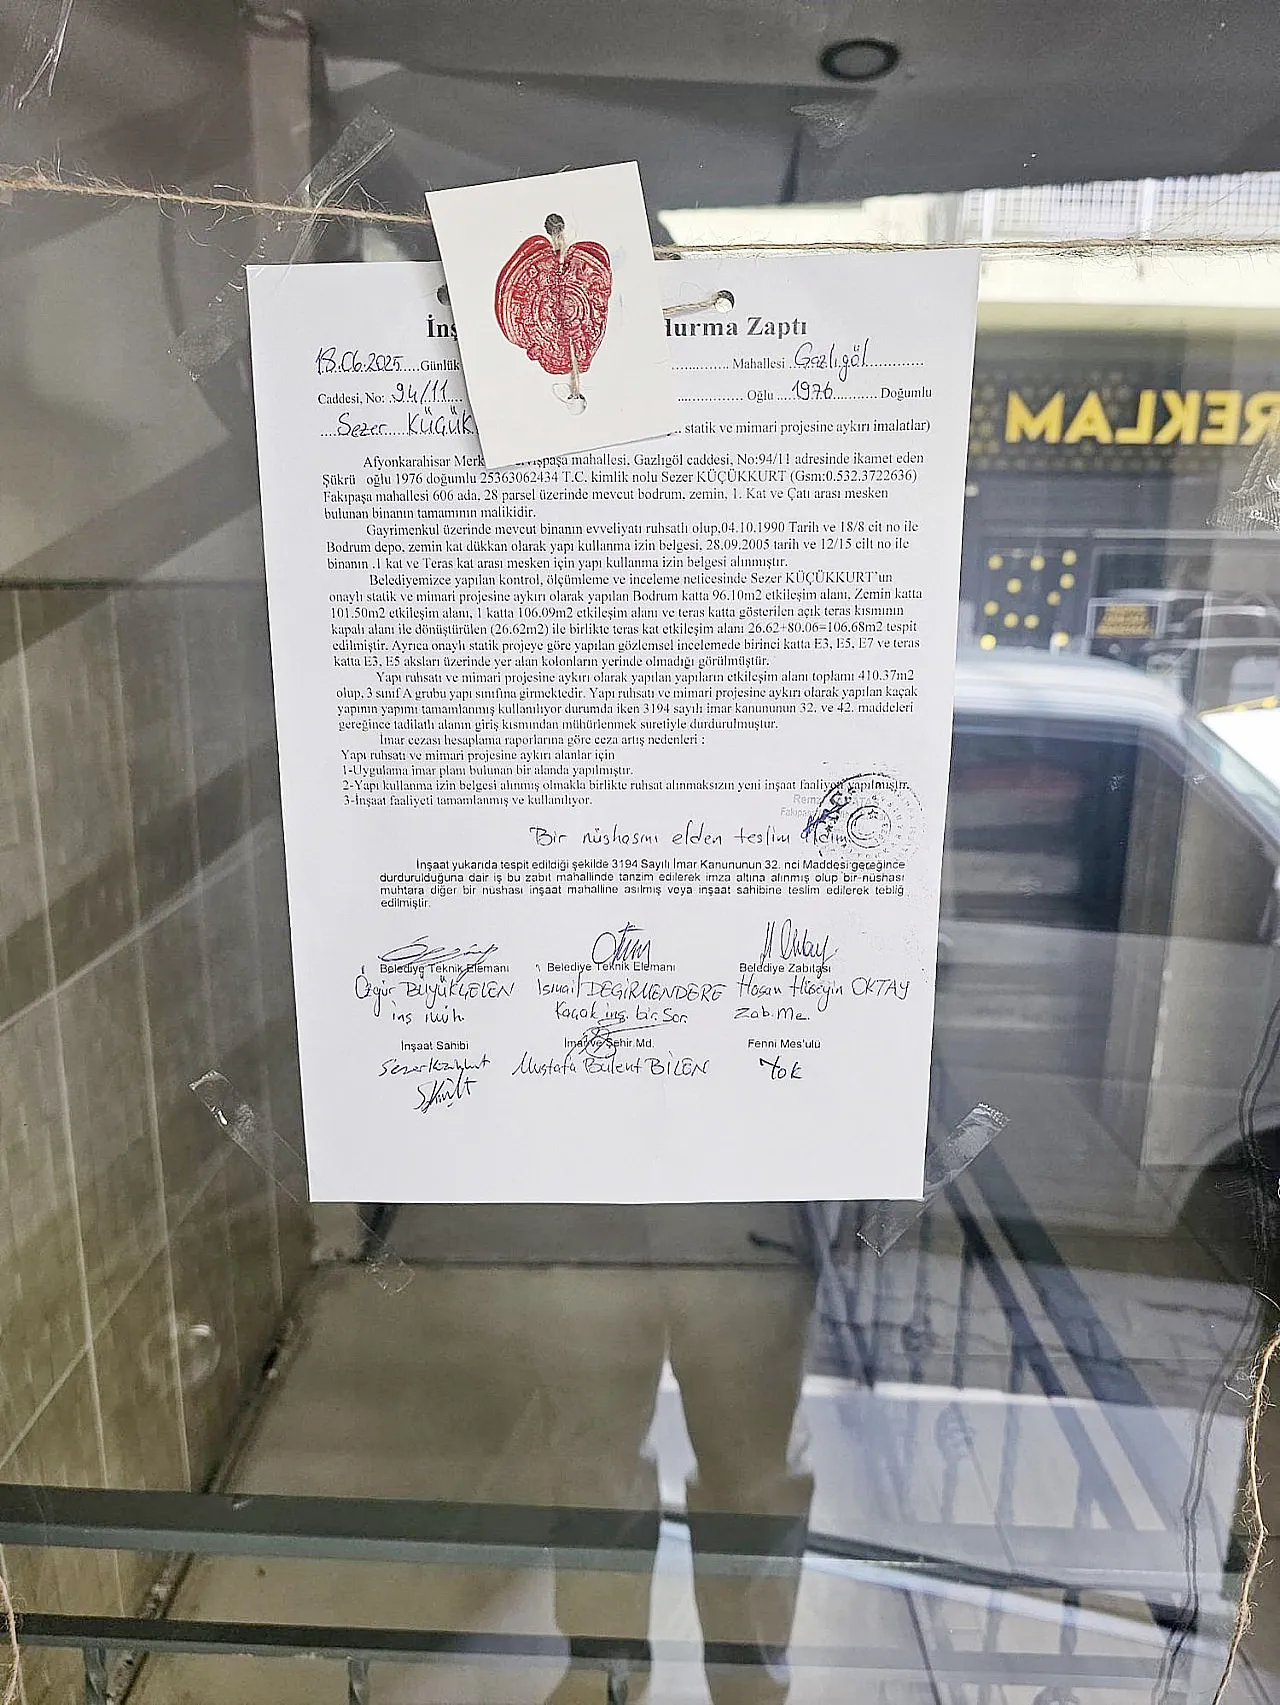 İnş durma Zaptı
18.06.2025....Günlük ......... Mahallesi ..Gazlıgöl..............
Caddesi, No: .94/11.... ................ Oğlu ....1976........... Doğumlu
....Sezer.....KÜÇÜK .. statik ve mimari projesine aykırı imalatlar)
Afyonkarahisar Merk mahallesi, Gazlıgöl caddesi, No:94/11 adresinde ikamet eden
Şükrü oğlu 1976 doğumlu 25363062434 T.C. kimlik nolu Sezer KÜÇÜKKURT (Gsm:0.532.3722636)
Fakıpaşa mahallesi 606 ada, 28 parsel üzerinde mevcut bodrum, zemin, 1. Kat ve Çatı arası mesken
bulunan binanın tamamının malikidir.
Gayrimenkul üzerinde mevcut binanın evveliyatı ruhsatlı olup,04.10.1990 Tarih ve 18/8 cit no ile
Bodrum depo, zemin kat dükkan olarak yapı kullanma izin belgesi, 28.09.2005 tarih ve 12/15 cilt no ile
binanın .1 kat ve Teras kat arası mesken için yapı kullanma izin belgesi alınmıştır.
Belediyemizce yapılan kontrol, ölçümleme ve inceleme neticesinde Sezer KÜÇÜKKURT'un
onaylı statik ve mimari projesine aykırı olarak yapılan Bodrum katta 96.10m2 etkileşim alanı, Zemin katta
101.50m2 etkileşim alanı, 1 katta 106.09m2 etkileşim alanı ve teras katta gösterilen açık teras kısmının
kapalı alanı ile dönüştürülen (26.62m2) ile birlikte teras kat etkileşim alanı 26.62+80.06=106.68m2 tespit
edilmiştir. Ayrıca onaylı statik projeye göre yapılan gözlemsel incelemede birinci katta E3, E5, E7 ve teras
katta E3, E5 aksları üzerinde yer alan kolonların yerinde olmadığı görülmüştür.
Yapı ruhsatı ve mimari projesine aykırı olarak yapılan yapıların etkileşim alanı toplamı 410.37m2
olup, 3 sınıf A grubu yapı sınıfına girmektedir. Yapı ruhsatı ve mimari projesine aykırı olarak yapılan kaçak
yapının yapımı tamamlanmış kullanılıyor durumda iken 3194 sayılı imar kanununun 32. ve 42. maddeleri
gereğince tadilatlı alanın giriş kısmından mühürlenmek suretiyle durdurulmuştur.
İmar cezası hesaplama raporlarına göre ceza artış nedenleri :
Yapı ruhsatı ve mimari projesine aykırı alanlar için
1-Uygulama imar planı bulunan bir alanda yapılmıştır.
2-Yapı kullanma izin belgesi alınmış olmakla birlikte ruhsat alınmaksızın yeni inşaat faaliyeti yapılmıştır.
3-İnşaat faaliyeti tamamlanmış ve kullanılıyor.
Bir nüshasını elden teslim aldım
İnşaat yukarıda tespit edildiği şekilde 3194 Sayılı İmar Kanununun 32. nci Maddesi gereğince
durdurulduğuna dair iş bu zabıt mahallinde tanzim edilerek imza altına alınmış olup bir nüshası
muhtara diğer bir nüshası inşaat mahalline asılmış veya inşaat sahibine teslim edilerek tebliğ
edilmiştir.
Belediye Teknik Elemanı Belediye Teknik Elemanı Belediye Zabıtası
Özgür BÜYÜKÇELEN İsmail DEĞİRMENDERE Hasan Hüseyin OKTAY
inş müh. Kaçak inş. bir. Sor. Zab. Me.
İnşaat Sahibi İmar ve Şehir Md. Fenni Mes'ulü
Mustafa Bülent BİLEN Yok
REKLAM